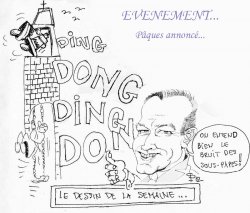 EVENEMENT...
Pâques annoncé...
DING
DONG
DING
DON
ON ENTEND
BIEN LE
BRUIT DES
SOUS-PAPES!
LE DESSIN DE LA SEMAINE...